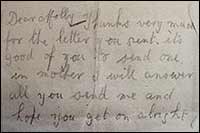 Dear Molly thanks very much
for the letter you sent it's
good of you to send one
in mother I will answer
all you send me and
hope you get on alright